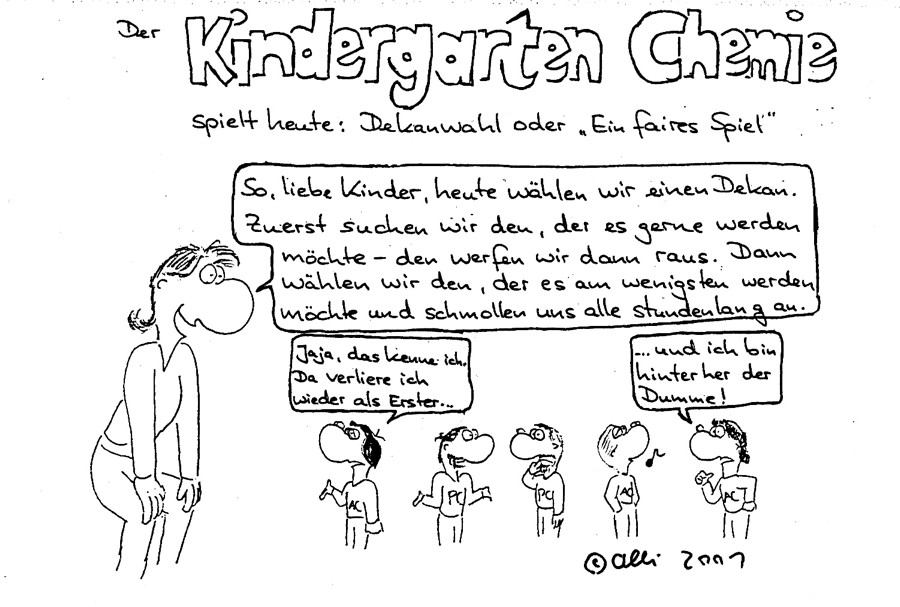 Der Kindergarten Chemie
spielt heute: Dekanwahl oder „Ein faires Spiel"
So, liebe Kinder, heute wählen wir einen Dekan.
Zuerst suchen wir den, der es gerne werden
möchte – den werfen wir dann raus. Dann
wählen wir den, der es am wenigsten werden
möchte und schmollen uns alle stundenlang an.
Jaja, das kenne ich.
Da verliere ich
wieder als Erster...
...und ich bin
hinterher der
Dumme!
AC
PC
PC
AC
AC
© alli 2001